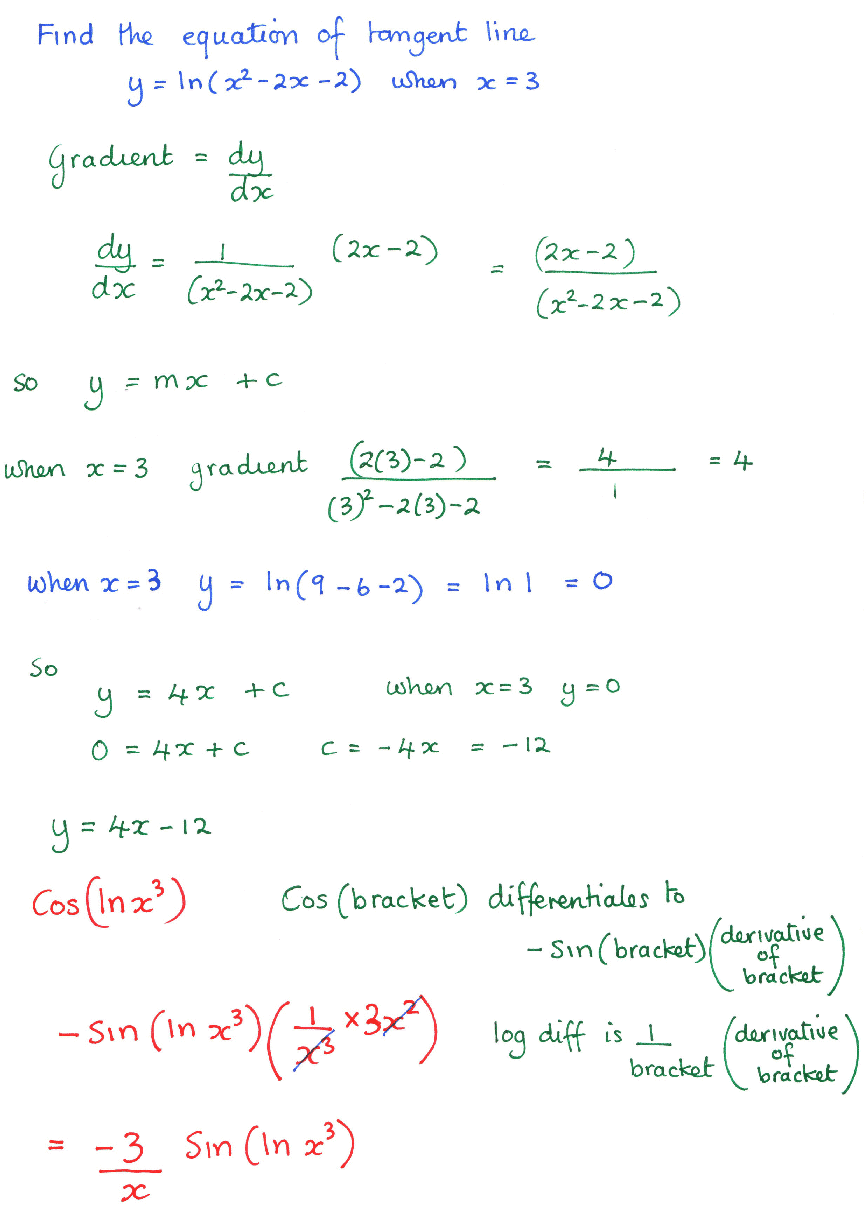 Find the equation of tangent line
y = ln(x² - 2x - 2) when x = 3
Gradient = dy/dx
dy/dx = 1/(x² - 2x - 2) (2x - 2) = (2x - 2)/(x² - 2x - 2)
so y = mx + c
when x = 3 gradient (2(3) - 2)/((3)² - 2(3) - 2) = 4/1 = 4
when x = 3 y = ln(9 - 6 - 2) = ln 1 = 0
So
y = 4x + c when x = 3 y = 0
0 = 4x + c c = -4x = -12
y = 4x - 12
Cos(ln x³) Cos (bracket) differentiales to
- Sin (bracket) (derivative of bracket)
- Sin (ln x³) (1/x³ × 3x²) log diff is 1/bracket (derivative of bracket)
= -3/x Sin (ln x³)